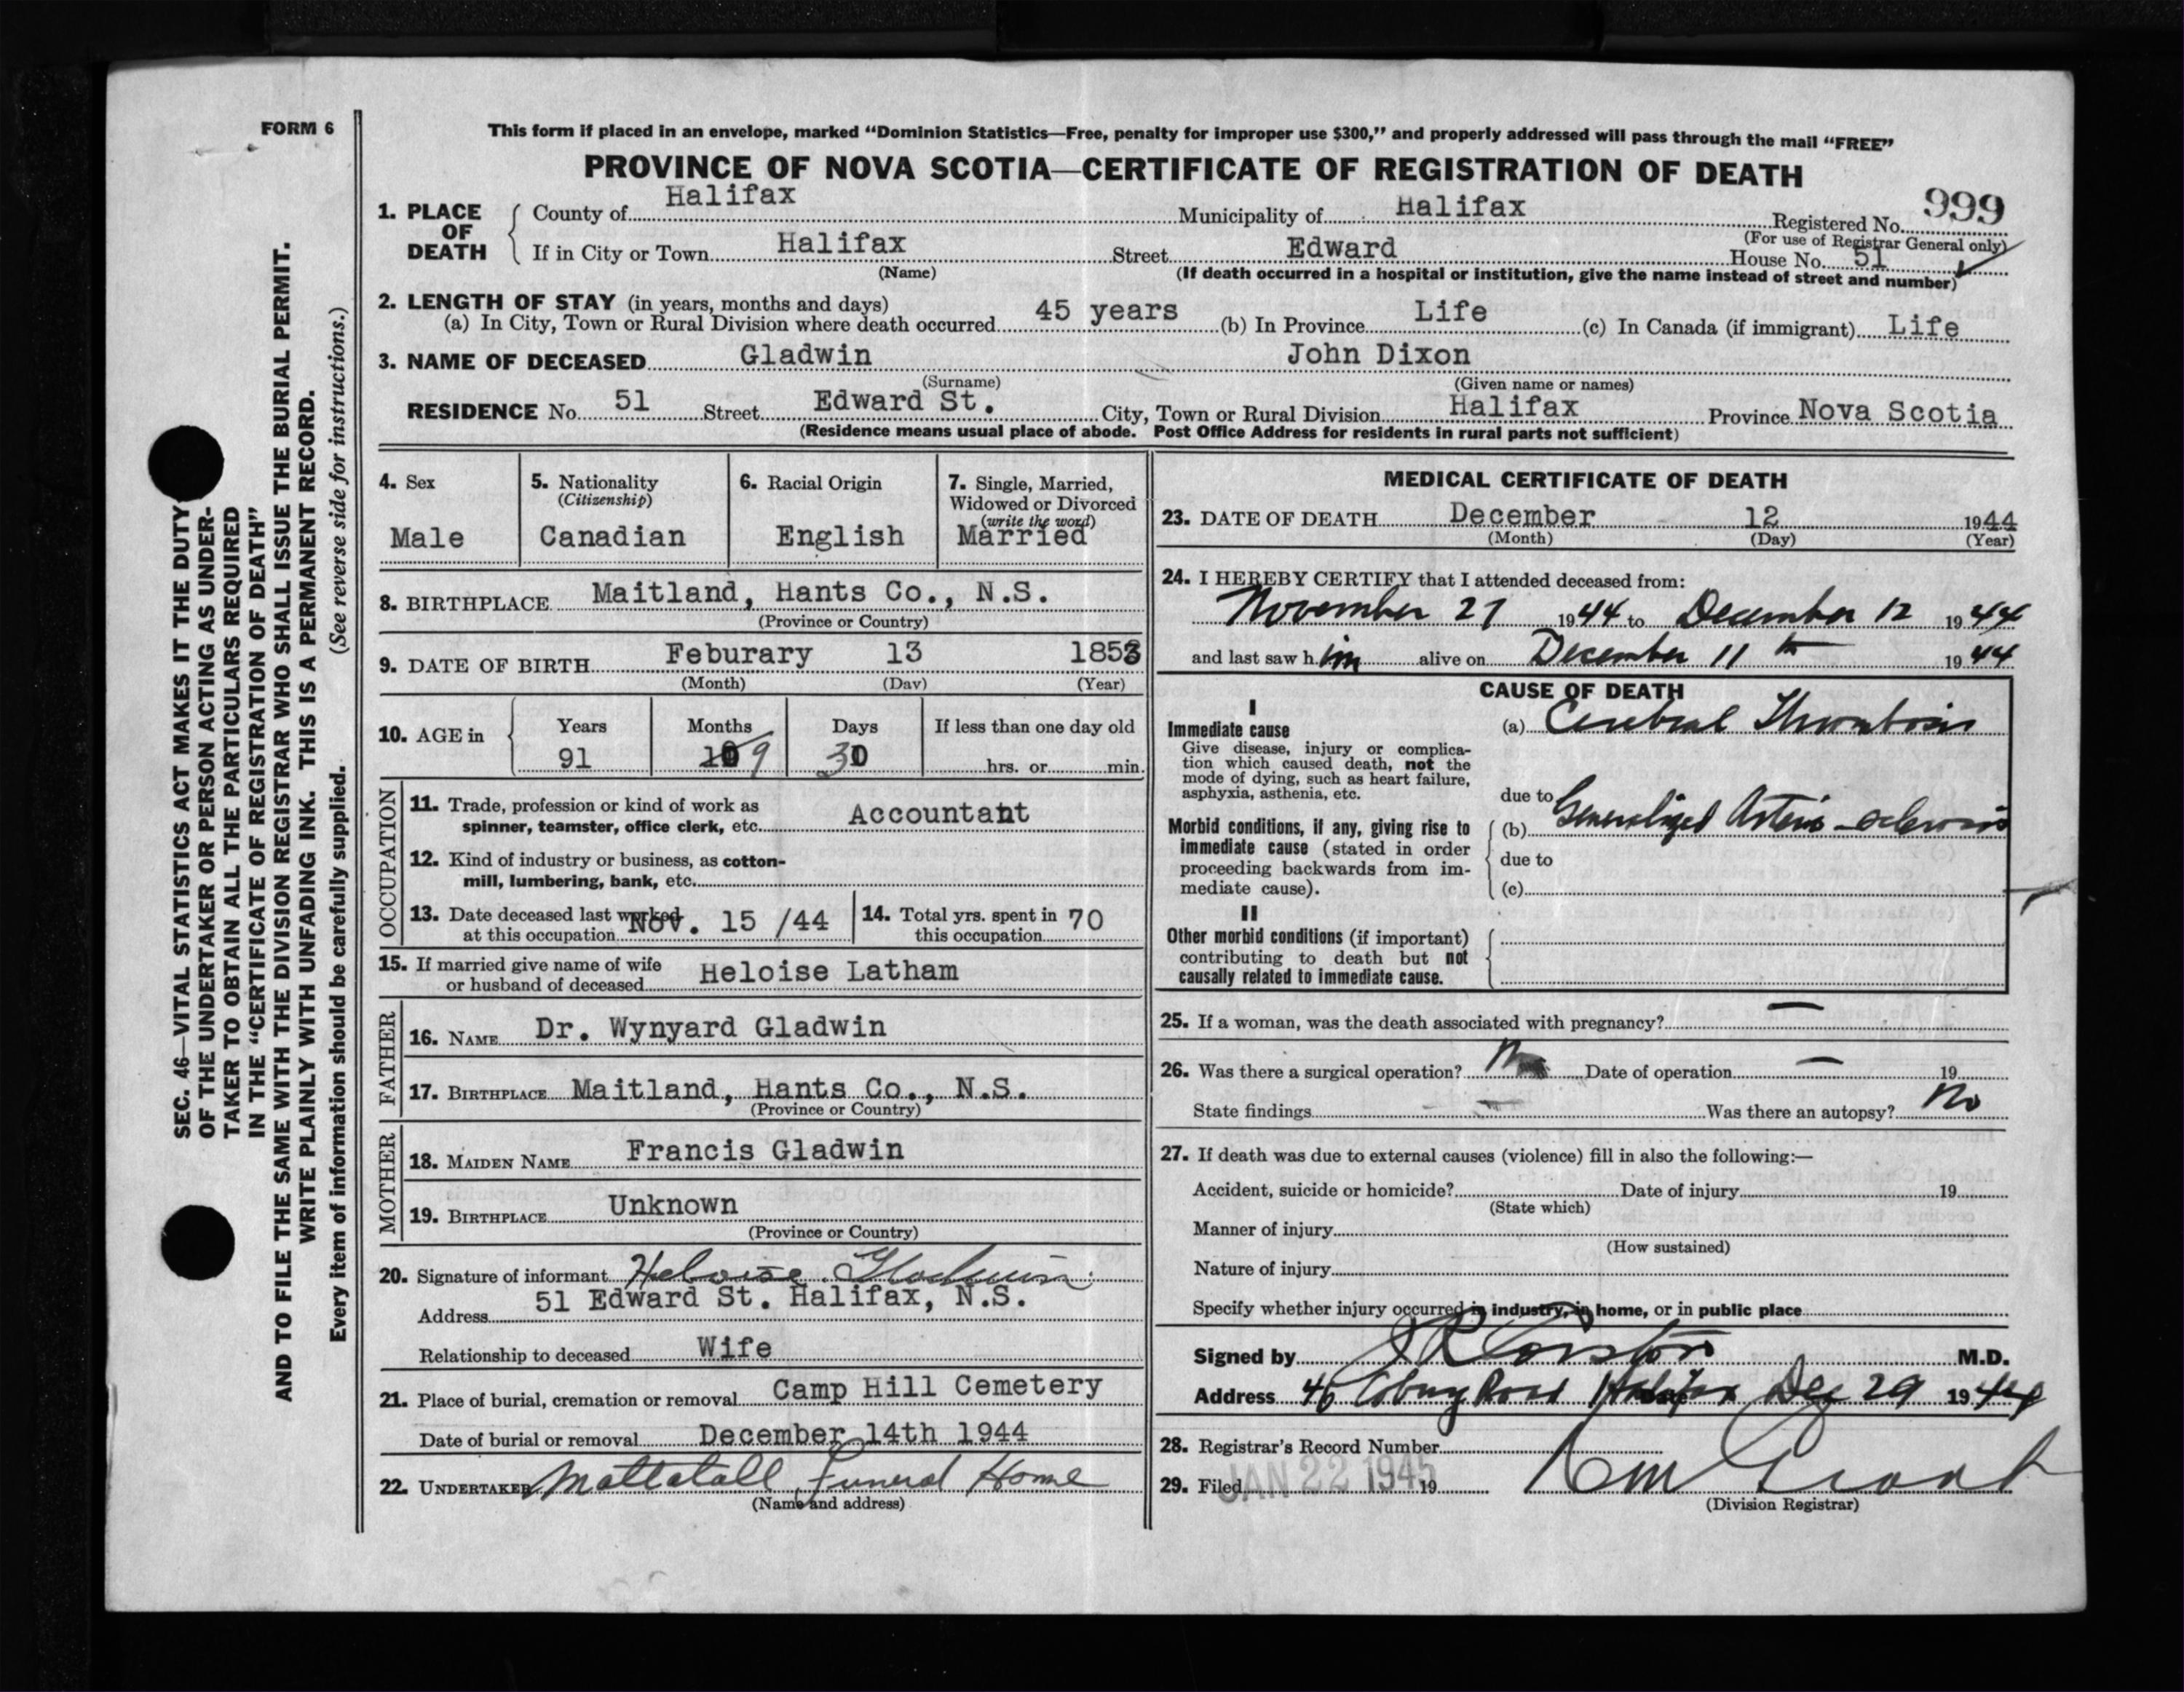 FORM 6
SEC. 46—VITAL STATISTICS ACT MAKES IT THE DUTY
OF THE UNDERTAKER OR PERSON ACTING AS UNDER-
TAKER TO OBTAIN ALL THE PARTICULARS REQUIRED
IN THE "CERTIFICATE OF REGISTRATION OF DEATH"
AND TO FILE THE SAME WITH THE DIVISION REGISTRAR WHO SHALL ISSUE THE BURIAL PERMIT.
WRITE PLAINLY WITH UNFADING INK. THIS IS A PERMANENT RECORD.
Every item of information should be carefully supplied. (See reverse side for instructions.)
This form if placed in an envelope, marked "Dominion Statistics—Free, penalty for improper use $300," and properly addressed will pass through the mail "FREE"
PROVINCE OF NOVA SCOTIA—CERTIFICATE OF REGISTRATION OF DEATH
1. PLACE OF DEATH County of Halifax Municipality of Halifax Registered No. 999
(For use of Registrar General only)
If in City or Town Halifax Street Edward House No. 51
(Name) (If death occurred in a hospital or institution, give the name instead of street and number)
2. LENGTH OF STAY (in years, months and days)
(a) In City, Town or Rural Division where death occurred 45 years (b) In Province Life (c) In Canada (if immigrant) Life
3. NAME OF DECEASED Gladwin John Dixon
(Surname) (Given name or names)
RESIDENCE No. 51 Street Edward St. City, Town or Rural Division Halifax Province Nova Scotia
(Residence means usual place of abode. Post Office Address for residents in rural parts not sufficient)
4. Sex Male
5. Nationality (Citizenship) Canadian
6. Racial Origin English
7. Single, Married, Widowed or Divorced (write the word) Married
8. BIRTHPLACE Maitland, Hants Co., N.S.
(Province or Country)
9. DATE OF BIRTH Feburary 13 1853
(Month) (Day) (Year)
10. AGE in Years Months Days If less than one day old
91 9 30 hrs. or min.
OCCUPATION
11. Trade, profession or kind of work as
spinner, teamster, office clerk, etc. Accountant
12. Kind of industry or business, as cotton-
mill, lumbering, bank, etc.
13. Date deceased last worked
at this occupation Nov. 15 /44
14. Total yrs. spent in
this occupation 70
15. If married give name of wife
or husband of deceased Heloise Latham
FATHER
16. NAME Dr. Wynyard Gladwin
17. BIRTHPLACE Maitland, Hants Co., N.S.
(Province or Country)
MOTHER
18. MAIDEN NAME Francis Gladwin
19. BIRTHPLACE Unknown
(Province or Country)
20. Signature of informant Heloise Gladwin
Address 51 Edward St. Halifax, N.S.
Relationship to deceased Wife
21. Place of burial, cremation or removal Camp Hill Cemetery
Date of burial or removal December 14th 1944
22. UNDERTAKER Mattatall Funeral Home
(Name and address)
MEDICAL CERTIFICATE OF DEATH
23. DATE OF DEATH December 12 1944
(Month) (Day) (Year)
24. I HEREBY CERTIFY that I attended deceased from:
November 27 1944 to December 12 1944
and last saw him alive on December 11th 1944
CAUSE OF DEATH
I
Immediate cause (a) Cerebral Thrombosis
Give disease, injury or complica-
tion which caused death, not the
mode of dying, such as heart failure,
asphyxia, asthenia, etc.
due to
Morbid conditions, if any, giving rise to (b) Generalized Arterio-sclerosis
immediate cause (stated in order
proceeding backwards from im-
mediate cause).
due to
(c)
II
Other morbid conditions (if important)
contributing to death but not
causally related to immediate cause.
25. If a woman, was the death associated with pregnancy? —
26. Was there a surgical operation? No Date of operation — 19
State findings — Was there an autopsy? No
27. If death was due to external causes (violence) fill in also the following:—
Accident, suicide or homicide? Date of injury 19
(State which)
Manner of injury
(How sustained)
Nature of injury
Specify whether injury occurred in industry, in home, or in public place
Signed by M.D.
Address 46 Coburg Road Halifax Date Dec 29 1944
28. Registrar's Record Number
29. Filed JAN 22 1945 19
(Division Registrar)